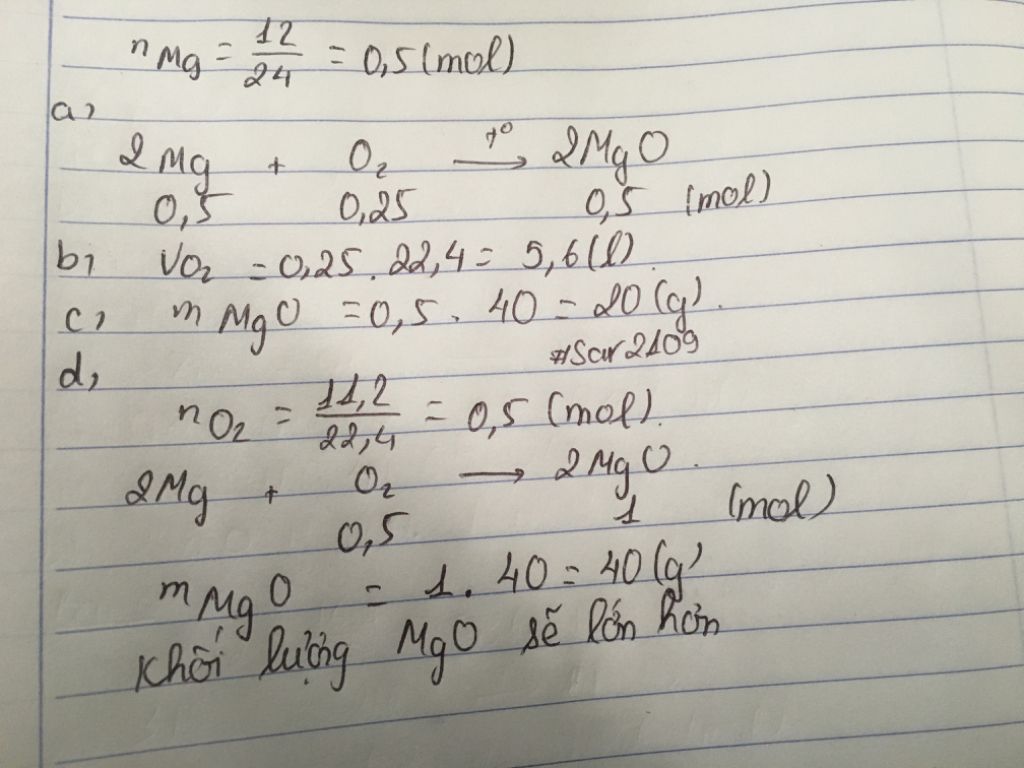 nMg = 12/24 = 0,5 (mol)
a,
2Mg + O₂ →t° 2MgO
0,5 0,25 0,5 (mol)
b, VO₂ = 0,25 . 22,4 = 5,6 (l).
c, mMgO = 0,5 . 40 = 20 (g).
#Scar2109
d,
nO₂ = 11,2/22,4 = 0,5 (mol).
2Mg + O₂ → 2MgO.
0,5 1 (mol)
mMgO = 1 . 40 = 40 (g)
Khối lượng MgO sẽ lớn hơn